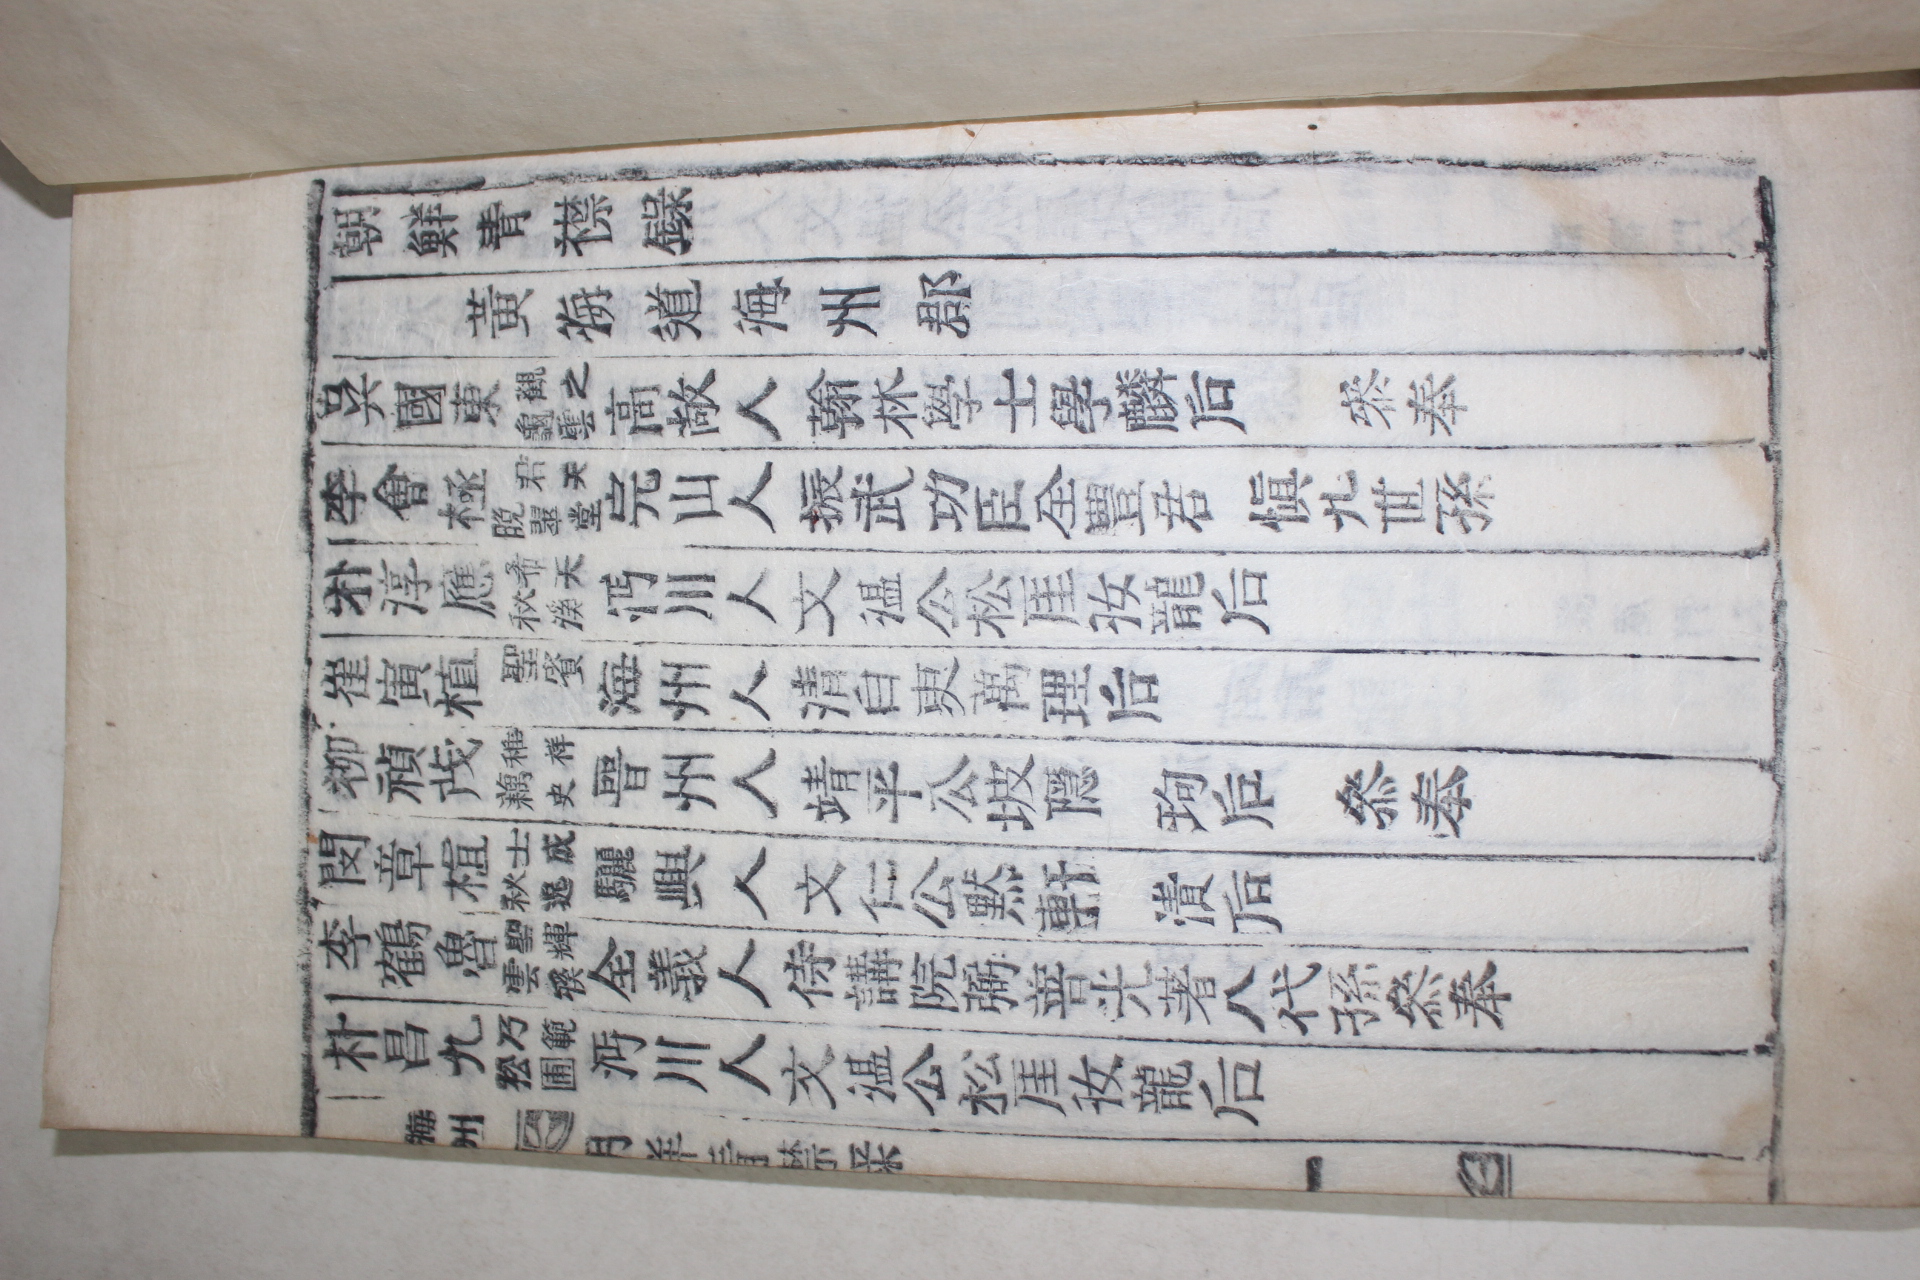 朝鮮青襟錄
黃海道海州郡
吳國東 觀之 龜雲 高敞人翰林學士學麟后 參奉
李會極 君天 脫翠堂 完山人振武功臣全豊君 愼九世孫
朴淳應 希天 秋溪 沔川人文溫公松厓汝龍后
崔寅植 聖賓 海州人淸白吏萬理后
柳禎茂 稚祥 史 晉州人靖平公坡隱 珣后 參奉
閔章植 士成 秋逸 驪興人文仁公默軒 漬后
李鶴魯 聖輝 雲 全義人侍講院弼善光著八代孫參奉
朴昌九 乃範 松圃 沔川人文溫公松厓汝龍后
海州 一